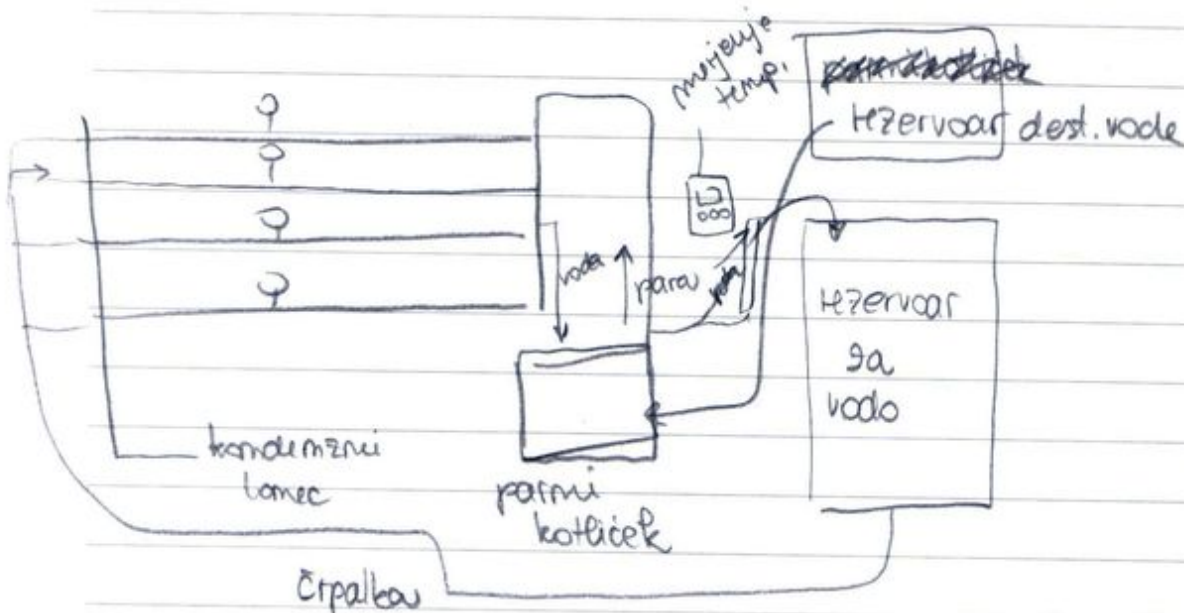 merjenje
temp.
rezervoar dest. vode
voda
para
voda
rezervoar
za
vodo
kondenzni
lonec
parni
kotliček
črpalka